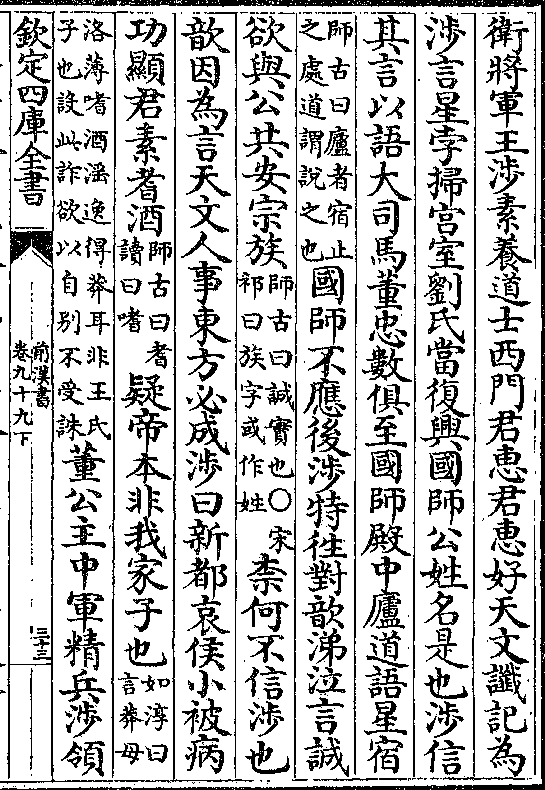 衛將軍王涉素養道士西門君惠君惠好天文讖記為
涉言星孛掃宫室劉氏當復興國師公姓名是也涉信
其言以語大司馬董忠數俱至國師殿中廬道語星宿
師古曰廬者宿止
之處道謂說之也
國師不應後涉特往對歆涕泣言誠
欲與公共安宗族
師古曰誠實也○宋
祁曰族字或作姓
柰何不信涉也
歆因為言天文人事東方必成涉曰新都哀侯小被病
功顯君素耆酒
師古曰耆
讀曰嗜
疑帝本非我家子也
如淳曰
言莽母
洛薄嗜酒淫逸得莽耳非王氏
子也設此詐欲以自别不受誅
董公主中軍精兵涉領
欽定四庫全書
前漢書
卷九十九下
三十三